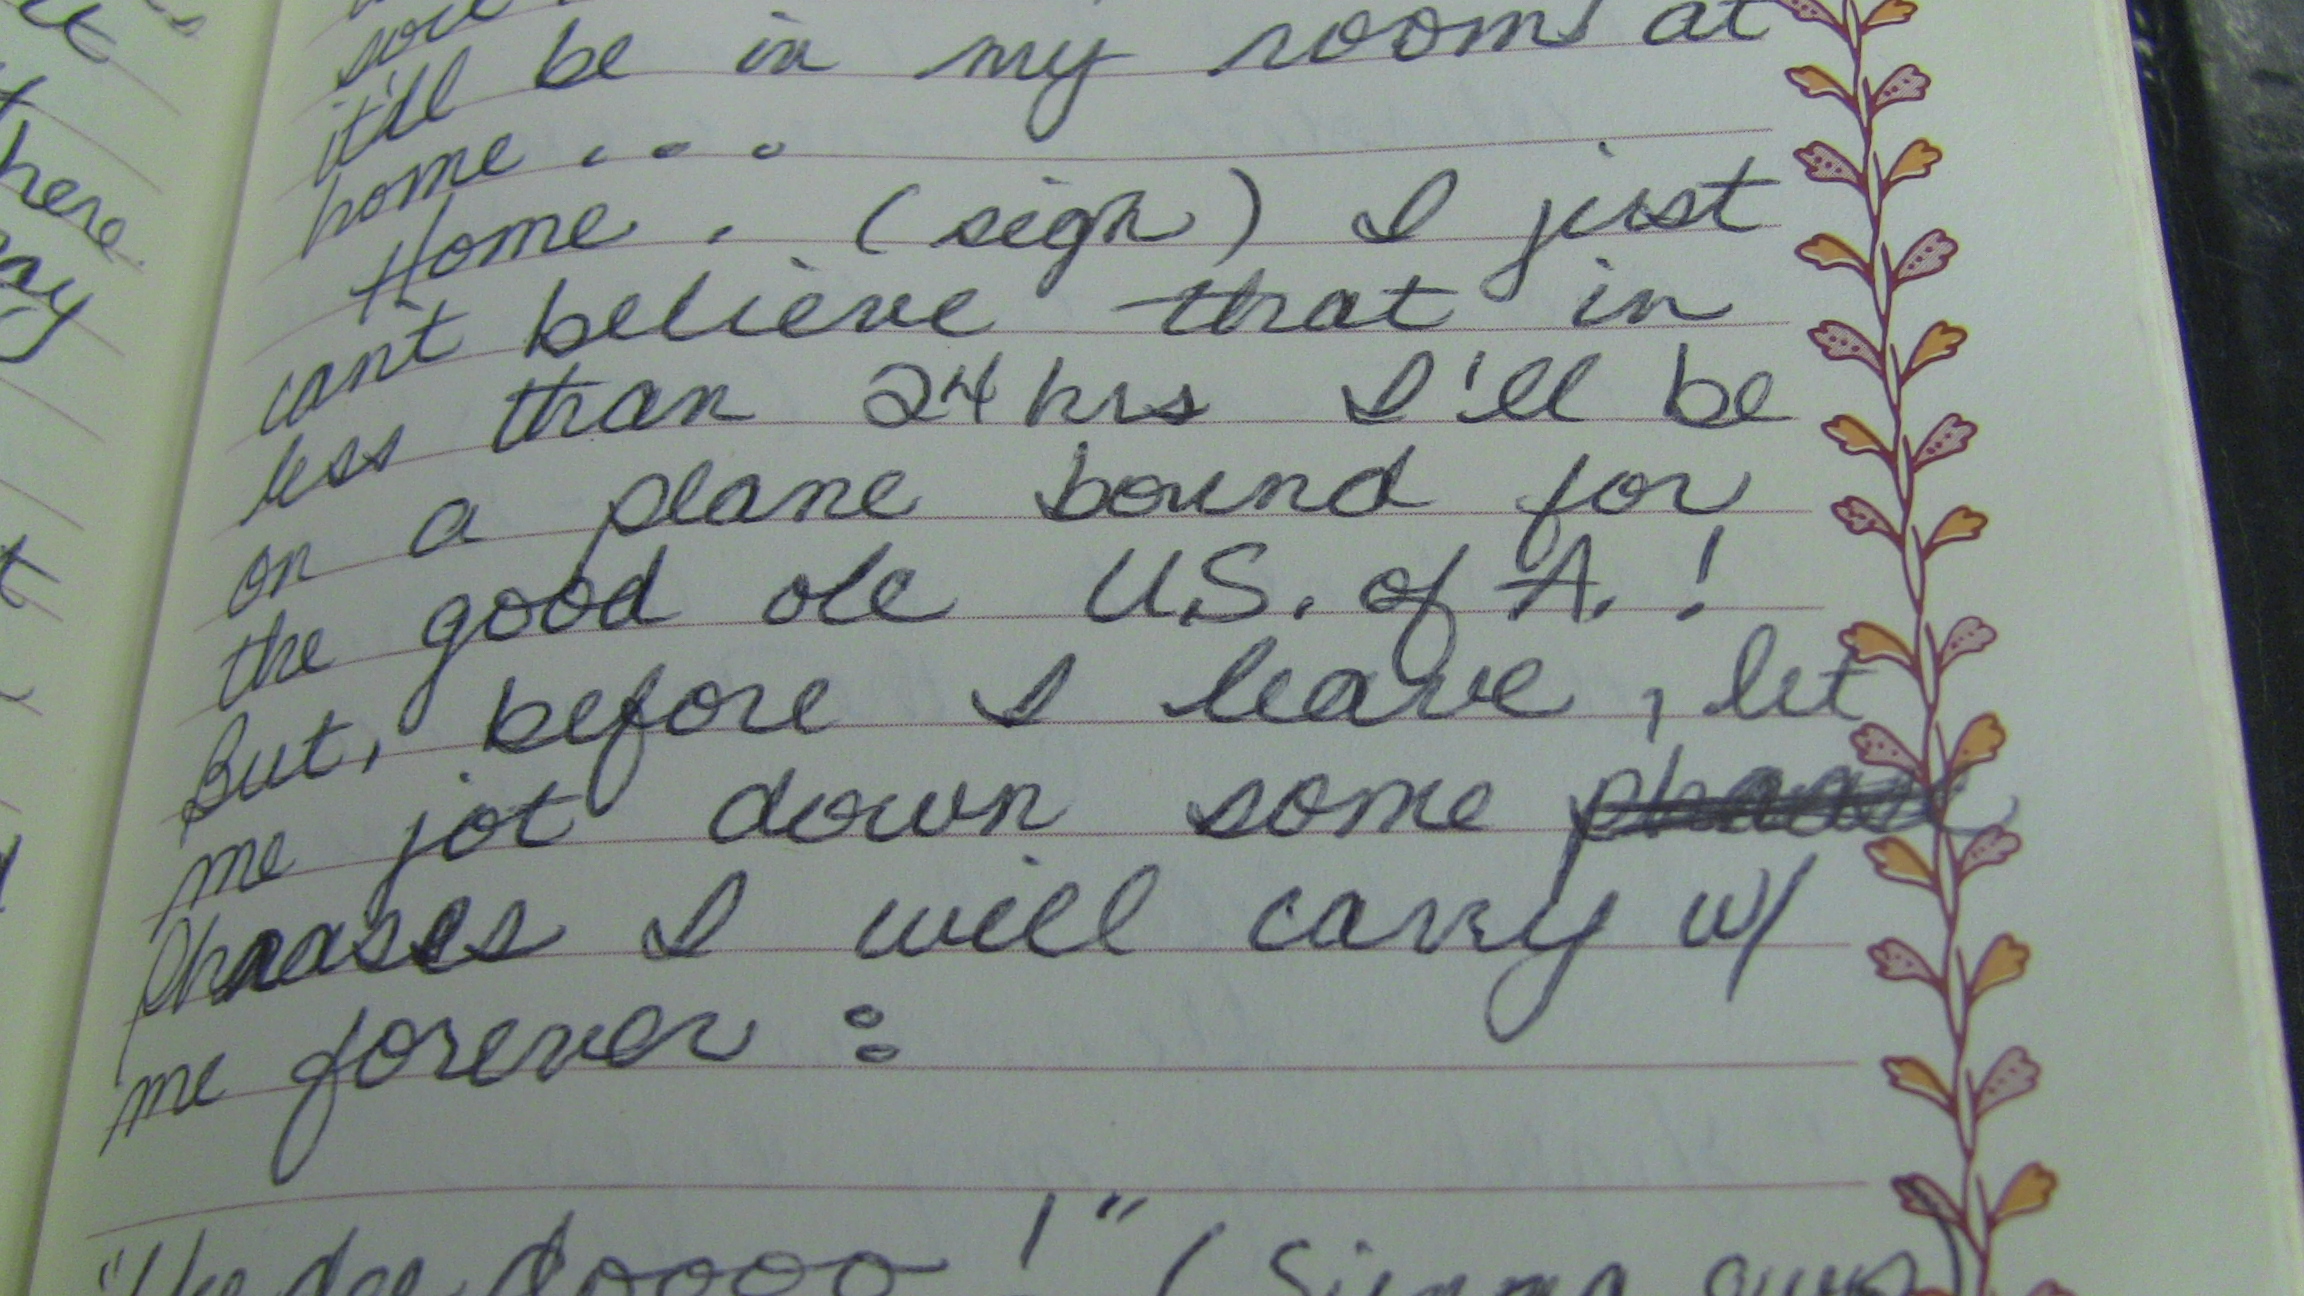 it'll be in my rooms at
home...
Home. (sigh) I just
can't believe that in
less than 24 hrs I'll be
on a plane bound for
the good ole U.S. of A.!
But, before I leave, let
me jot down some
Phraases I will carry w/
me forever:
doooo!" (
here